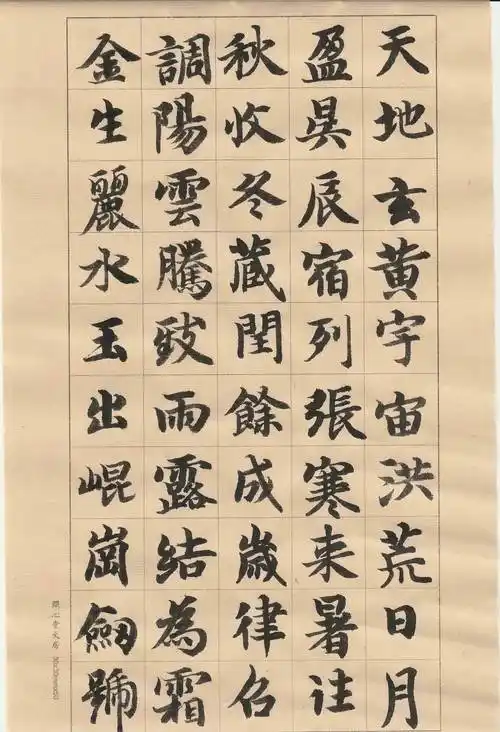 天地玄黄宇宙洪荒日月
盈昃辰宿列張寒来暑往
秋收冬蔵閏餘成歲律召
調陽雲騰致雨露結為霜
金生麗水玉出崐崗劒號